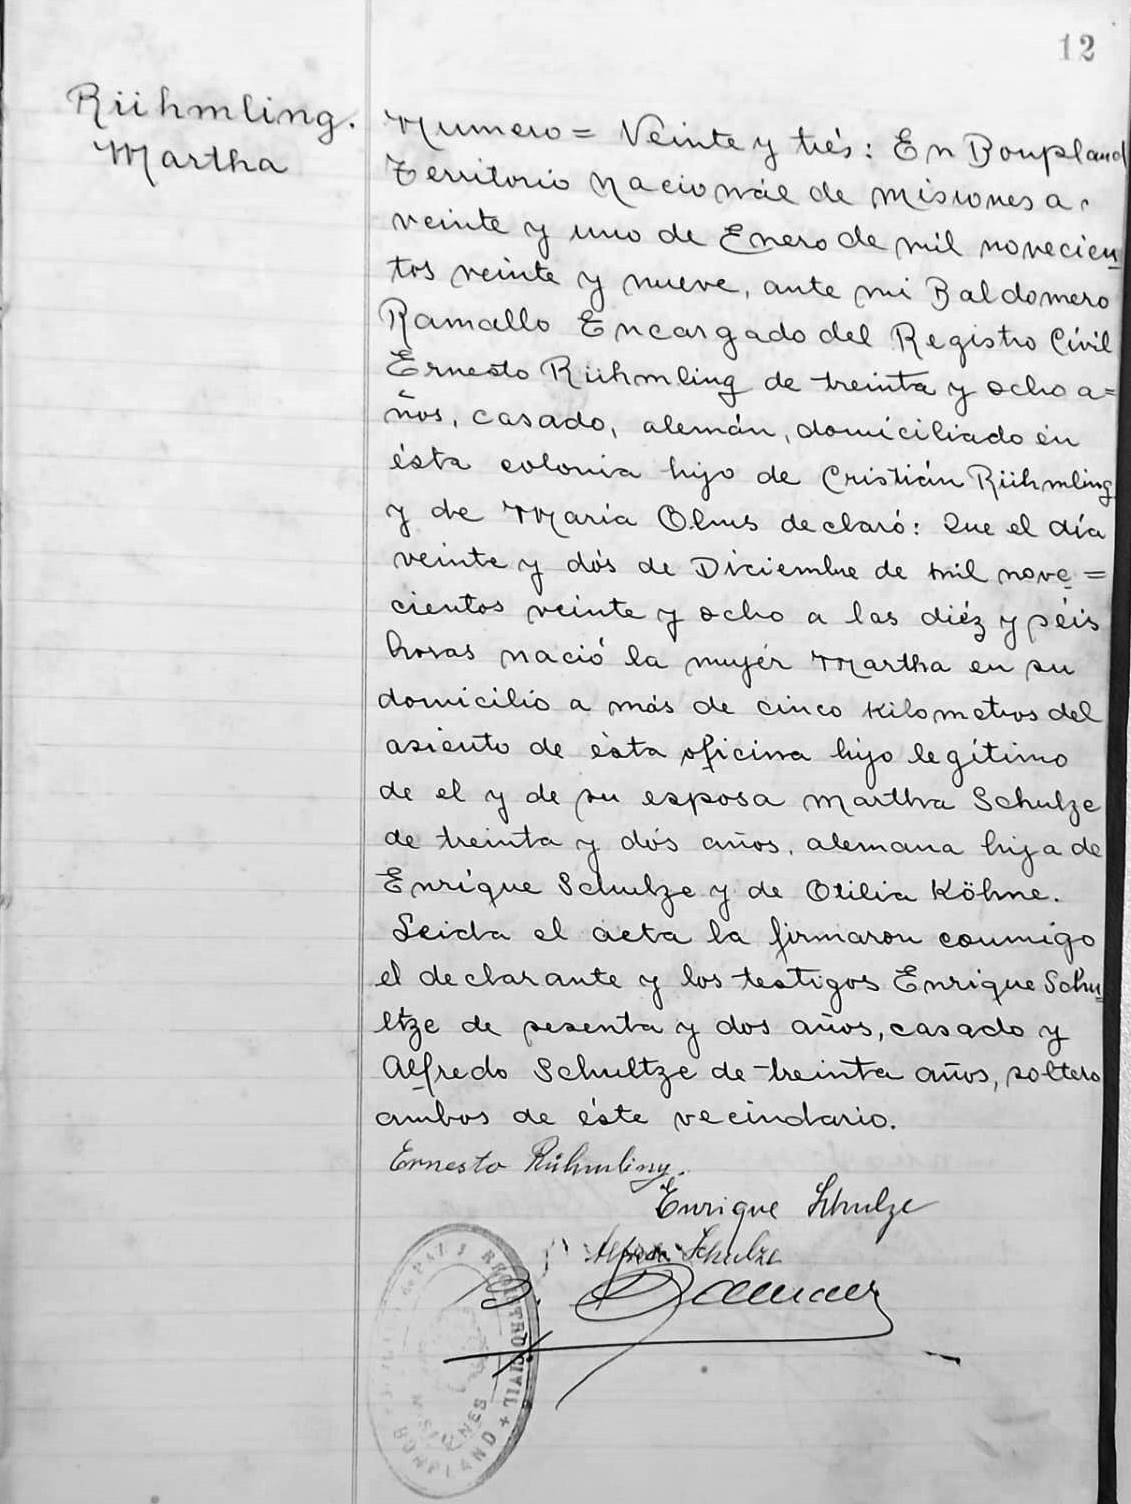 12
Rühmling.
Martha
Numero = Veinte y trés: En Bonpland
Territorio Nacionál de Misiones a,
veinte y uno de Enero de mil novecien
tos veinte y nueve, ante mi Baldomero
Ramallo Encargado del Registro Cívil
Ernesto Rühmling de treinta y ocho a=
ños, casado, alemán, domiciliado én
ésta colonia hijo de Cristián Rühmling
y de María Olms declaró: Que el día
veinte y dós de Diciembre de mil nove=
cientos veinte y ocho a las diéz y séis
horas nació la mujér Martha en su
domicilio a más de cinco kilometros del
asiento de ésta oficina hijo legítimo
de el y de su esposa Martha Schulze
de treinta y dós años, alemana hija de
Enríque Schulze y de Otilia Köhne.
Leida el acta la firmaron conmigo
el declarante y los testigos Enrique Schu
ltze de sesenta y dos años, casado y
Alfredo Schultze de treinta años, soltero
ambos de éste vecindario.
Ernesto Rühmling.
Enrique Schulze
Schulze
REGISTRO CIVIL
MISIONES
BONPLAND